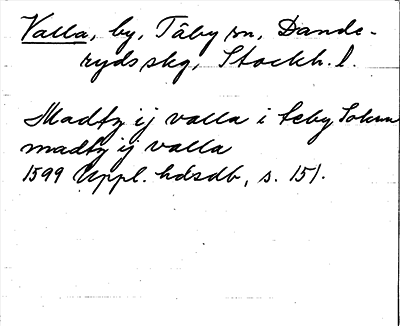 Valla, by, Täby sn, Dande-
rydsskg, Stockh. l.
Madtz ij valla i teby Sokn
madtz ij valla
1599 Uppl. hdsdb, s. 151.